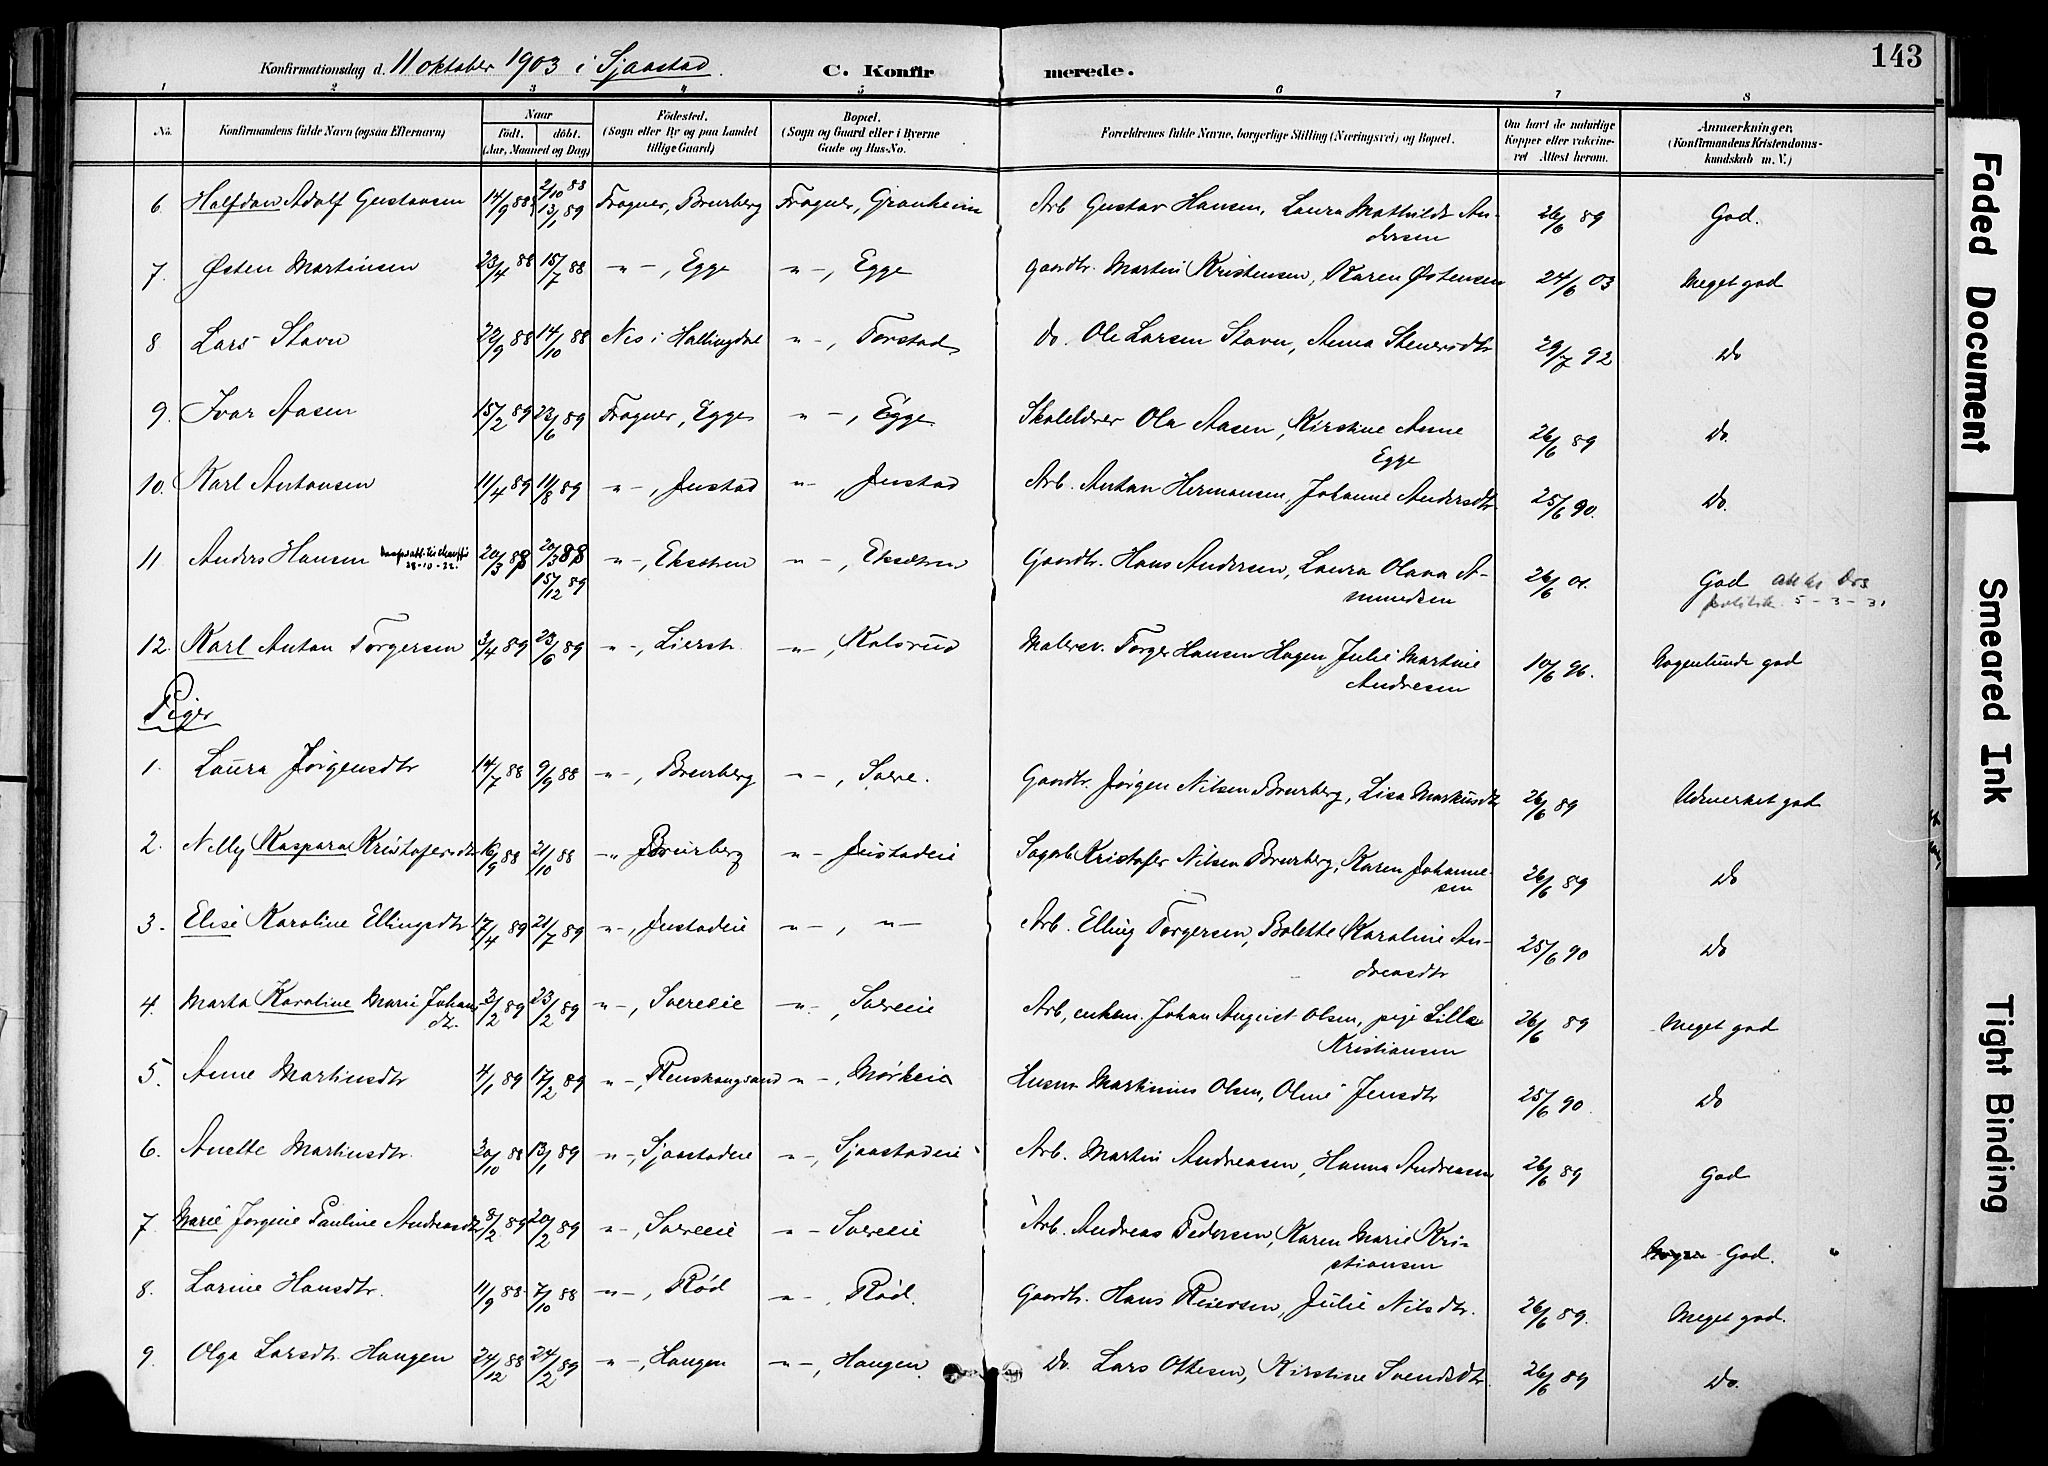 143
Konfirmationsdag d. 11 oktober 1903 i Sjaastad. C. Konfirmerede.
1 2 3 4 5 6 7 8
No. Konfirmandens fulde Navn (ogsaa Efternavn) Naar født. døbt. (Aar, Maaned og Dag) Fødested. (Sogn eller By og paa Landet tillige Gaard) Bopæl. (Sogn og Gaard eller i Byerne Gade og Hus-No. Forældrenes fulde Navne, borgerlige Stilling (Næringsvei) og Bopæl. Om havt de naturlige Kopper eller vakcineret Attest herom. Anmærkninger. (Konfirmandens Kristendomskundskab m. V.)
6. Halfdan Adolf Gustavsen 14/9 88 2/10 88 13/1 89 Frogner, Brurberg Frogner, Granheim Arb Gustav Hansen, Laura Mathilde Andersen 26/6 89 God.
7. Østen Martinsen 23/4 88 15/7 88 -"-, Egge -"-, Egge Gaardbr. Martin Kristensen, Karen Østensen 24/6 03 Meget god
8 Lars Stavn 22/9 88 14/10 88 Nes i Hallingdal -"-, Torstad Do. Ole Larsen Stavn, Anna Stenersdtr 29/7 92 Do
9. Ivar Aasen 15/2 89 23/6 89 Frogner, Egge -"-, Egge Skolelærer Ola Aasen, Kirstine Anne Egge 26/6 89 Do.
10. Karl Antonsen 11/4 89 11/8 89 -"-, Justad -"-, Justad Arb. Anton Hermansen, Johanne Andersdtr 25/6 90. Do.
11 Anders Hansen 28-10-22. 20/3 88 20/3 88 15/12 89 -"-, Eksætren -"-, Eksætren Gaardbr. Hans Andersen, Laura Olava Amundsen 26/6 01. God 5-3-31
12. Karl Anton Torgersen 3/4 89 23/6 89 -"-, Lierstr. -"-, Kalsrud Malersv. Torger Hansen Hagen, Julie Martine Andresen 10/6 96. Nogenlunde god
Piger
1. Laura Jørgensdtr 14/7 88 9/9 88 -"-, Brurberg -"-, Svere. Gaardbr. Jørgen Nilsen Brurberg, Lisa Markusdtr 26/6 89 Udmerket god
2. Nelly Kaspara Kristofersdtr 16/9 88 21/10 88 -"- Brurberg -"- Justadeie Sagarb. Kristofer Nilsen Brurberg, Karen Johannesen 26/6 89 Do
3. Elise Karoline Ellingsdtr 17/4 89 21/7 89 -"-, Justadeie -"-, -"- Arb. Elling Torgersen, Bolette Karoline Andreasdtr 25/6 90 Do
4. Marta Karoline Marie Johansdtr. 3/2 89 23/2 89 -"-, Svereeie -"-, Svereeie Arb, enkem. Johan August Olsen, pige Lilla Kristiansen 26/6 89 Meget god
5. Anne Martinsdtr 4/1 89 17/2 89 -"-, Renskaugsand -"-, Mørkeie Husm. Martinius Olsen, Oline Jensdtr 25/6 90. Do
6. Anette Martinsdtr. 30/10 88 13/1 89 -"-, Sjaastadeie -"-, Sjaastadeie Arb. Martin Andreasen, Hanna Andreasen 26/6 89 God
7. Marie Jørgine Pauline Andreasdtr 8/2 89 20/2 89 -"-, Svereeie -"- Svereeie Arb. Andreas Pedersen, Karen Marie Kristiansen God.
8. Larine Hansdtr. 11/9 88 7/10 88 -"-, Rød -"-, Rød. Gaardbr. Hans Reiersen, Julie Nilsdtr. 26/6 89. Meget god.
9. Olga Larsdtr. Haugen 24/12 88 24/2 89 -"-, Haugen -"-, Haugen. Do. Lars Ottesen, Kirstine Svendsdtr. 26/6 89 Do.
Faded Document
Smeared Ink
Tight Binding